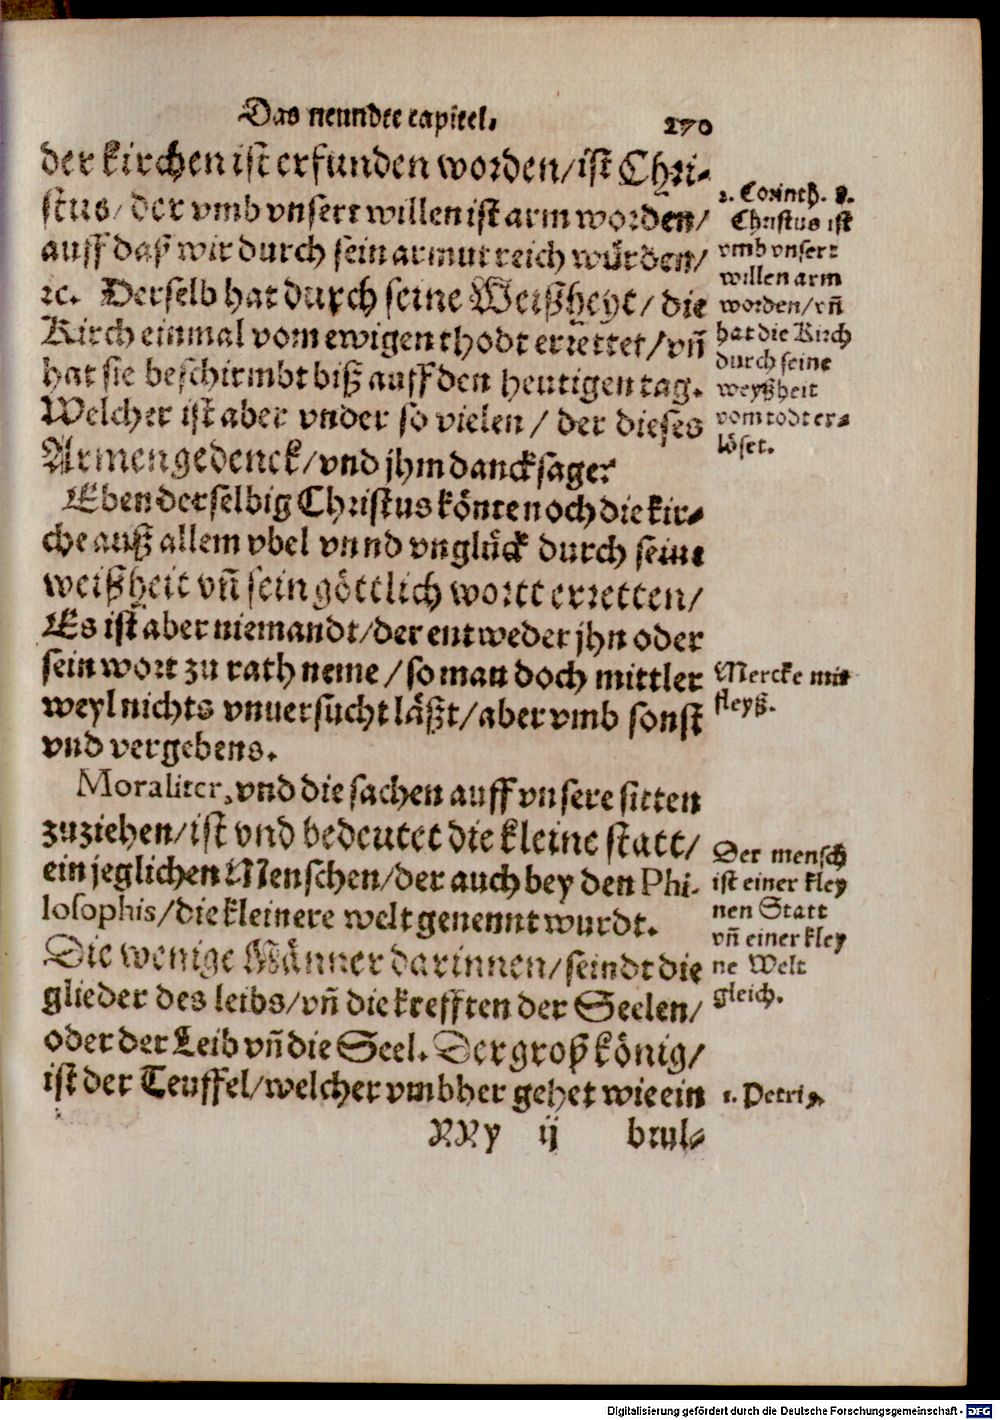 Das neundte capitel.
270
der kirchen ist erfunden worden/ist Chri-
stus/ der vmb vnsert willen ist arm worden/
auff daß wir durch sein armut reich würden/
ꝛc. Derselb hat durch seine Weißheyt/ die
Kirch einmal vom ewigen thodt errettet/vn̄
hat sie beschirmbt biß auff den heutigen tag.
Welcher ist aber vnder so vielen/ der dieses
Armen gedenck/vnd jhm dancksage?
Eben derselbig Christus könte noch die kir-
che auß allem vbel vnnd vnglück durch seine
weißheit vn̄ sein göttlich wortt erretten/
Es ist aber niemandt/der entweder jhn oder
sein wort zu rath neme/so man doch mittler
weyl nichts vnuersucht läßt/aber vmb sonst
vnd vergebens.
Moraliter, vnd die sachen auff vnsere sitten
zuziehen/ist vnd bedeutet die kleine statt/
ein jeglichen Menschen/der auch bey den Phi-
losophis/die kleinere welt genennt wurdt.
Die wenige Männer darinnen/seindt die
glieder des leibs/vn̄ die krefften der Seelen/
oder der Leib vn̄ die Seel. Der groß könig/
ist der Teuffel/welcher vmbher gehet wie ein
XXy ij brul-
2. Corinth. 8.
Christus ist
vmb vnsert
willen arm
worden/vn̄
hat die Kirch
durch seine
weyßheit
vom todt er-
löset.
Mercke mit
fleyß.
Der mensch
ist einer kley
nen Statt
vn̄ einer kley
ne Welt
gleich.
1. Petri 5.
Digitalisierung gefördert durch die Deutsche Forschungsgemeinschaft - DFG